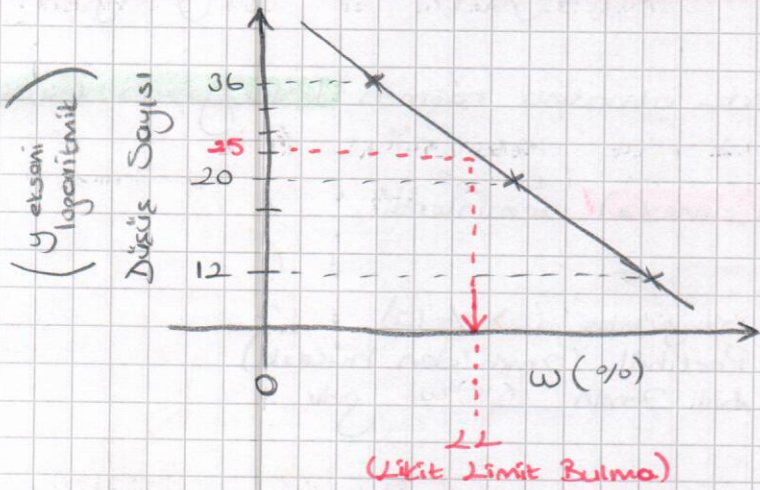 (y ekseni
logaritmik)
Düşüş Sayısı
36
25
20
12
0
ω (%)
LL
(Likit Limit Bulma)